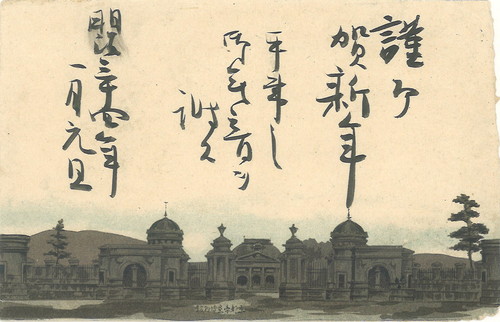 謹
賀新年
平素
御無音ヲ
謝ス
明治三十四年
一月元旦